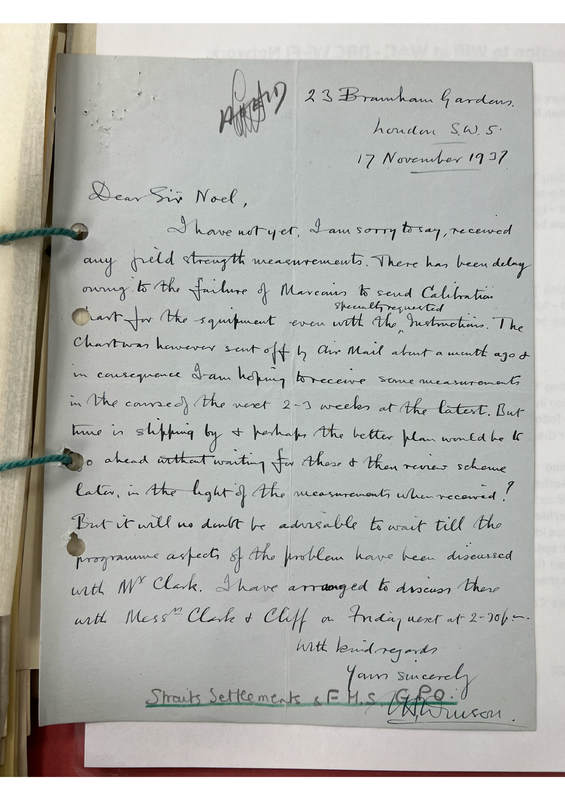 23 Bramham Gardens.
London S.W.5.
17 November 1937
Dear Sir Noel,
I have not yet, I am sorry to say, received
any field strength measurements. There has been delay
owing to the failure of Marconis to send Calibration
specially requested
Chart for the equipment even with the Instructions. The
Chart was however sent off by Air Mail about a month ago &
in consequence I am hoping to receive some measurements
in the course of the next 2-3 weeks at the latest. But
time is slipping by & perhaps the better plan would be to
go ahead without waiting for these & then review scheme
later, in the light of the measurements when received?
But it will no doubt be advisable to wait till the
programme aspects of the problem have been discussed
with Mr Clark. I have arranged to discuss these
with Messrs Clark & Cliff on Friday next at 2-30 p.m.
With kind regards
Yours sincerely
Straits Settlements & F.M.S. G.P.O.